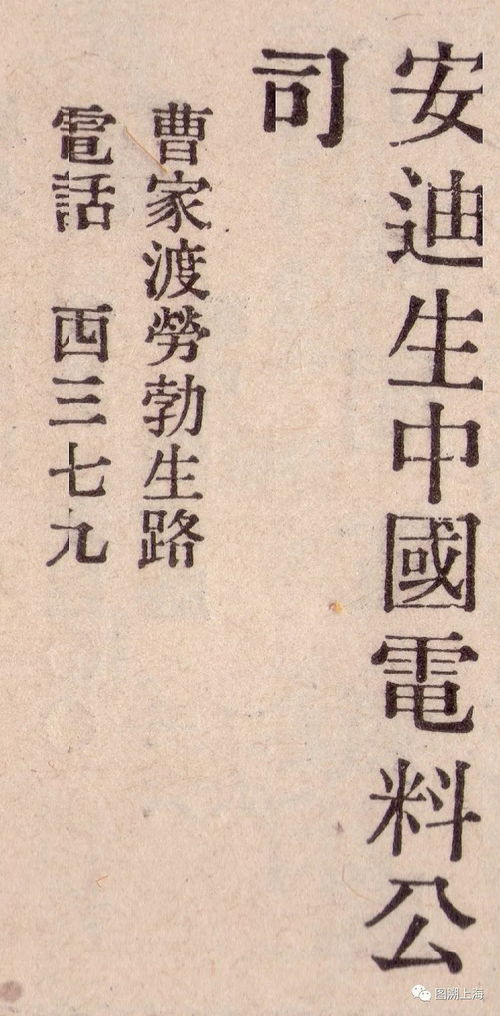 安迪生中國電料公
司
曹家渡勞勃生路
電話 西三七九
图溯上海